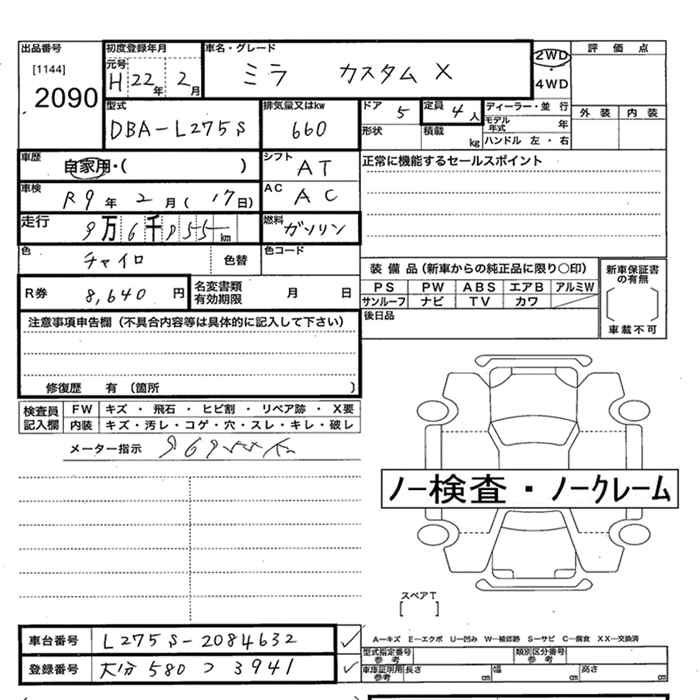 出品番号 [1144] 2090
初度登録年月 元号 H 22年 2月
車名・グレード ミラ カスタム X
2WD ・ 4WD
評価点
外装 内装
型式 DBA-L275S
排気量又はkw 660
ドア 5
定員 4人
形状
積載 kg
ディーラー・並行
モデル年式 年
ハンドル 左・右
車歴 自家用・( )
シフト AT
正常に機能するセールスポイント
車検 R9年 2月 (17日)
AC AC
走行 9万6千955km
燃料 ガソリン
色 チャイロ 色替
色コード
R券 8,640円
名変書類有効期限 月 日
装備品(新車からの純正品に限り〇印)
PS PW ABS エアB アルミW
サンルーフ ナビ TV カワ
新車保証書の有無 [ ] 車載不可
後日品
注意事項申告欄(不具合内容等は具体的に記入して下さい)
修復歴 有(箇所 )
検査員記入欄
FW キズ・飛石・ヒビ割・リペア跡・X要
内装 キズ・汚レ・コゲ・穴・スレ・キレ・破レ
メーター指示 96955K
ノー検査・ノークレーム
スペアT [ ]
車台番号 L275S-2084632
登録番号 大分 580 つ 3941
A―キズ E―エクボ U―凹み W―補修跡 S―サビ C―腐食 XX―交換済
型式指定番号 参考
類別区分番号 参考
車庫証明用 参考 長さ cm 幅 cm 高さ cm